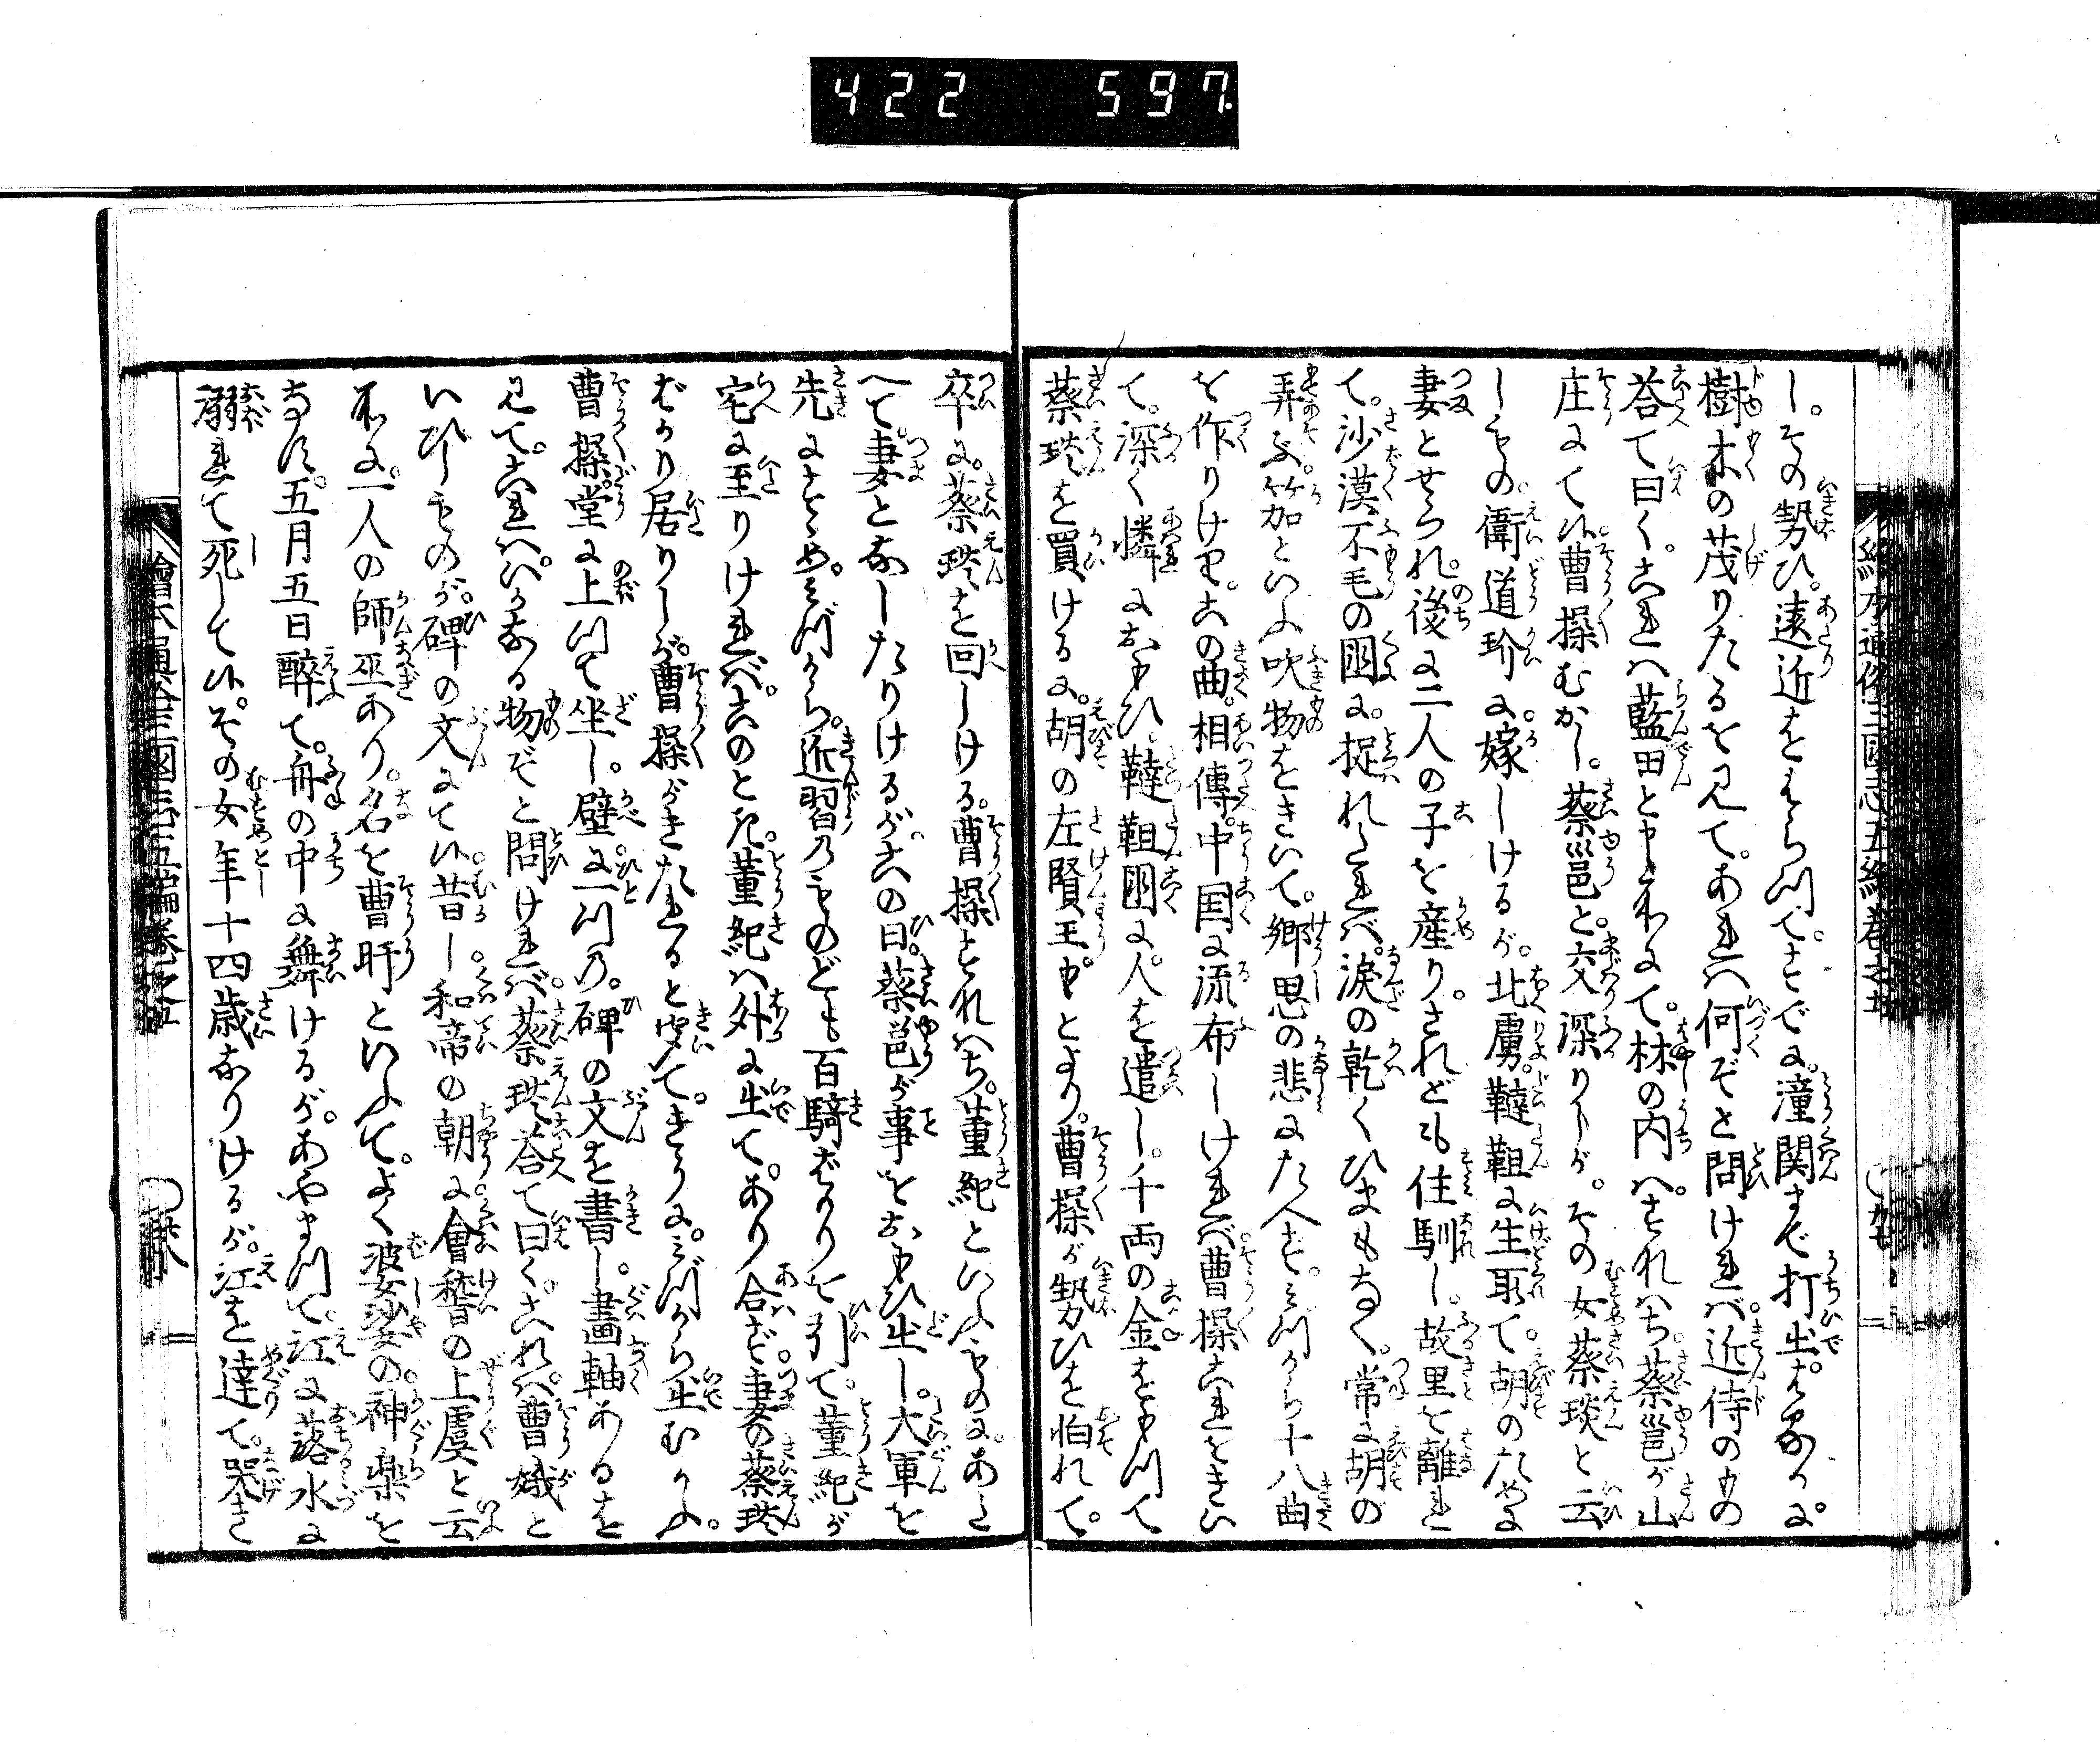 422 597
し。その勢ひ。遠近をはらつて。すでに。潼関まで打出けるに。
樹木の茂りたるを見て。あれハ何ぞと問けれバ。近侍のもの
答て曰く。これハ藍田と申所にて。林の内ハ。すなハち。蔡邕が山
庄にて候。曹操むかし。蔡邕と。交深りしが。その女蔡琰と云
しもの。衛道玠に。嫁しけるが。北虜。韃靼に生取て。胡のために
妻とせられ。後に二人の子を産り。されども住馴し。故里を離れ
て。沙漠不毛の国に。捉れたれバ。涙の乾くひまもなく。常に胡の
弄ぶ。笳といふ吹物をきいて。郷思の悲にたへず。みづから十八曲
を作りけり。この曲。相傳。中国に流布しけれバ曹操これをきひ
て。深く憐におもひ。韃靼国に。人を遣し。千両の金をもつて
蔡琰を買ける。に。胡の左賢王。もとより。曹操が勢ひを怕れて。
卒に。蔡琰を回しける。曹操すなハち。董紀といふものに。あた
へて妻となしたりけるが。この日。蔡邕が事をおもひ出し。大軍を
先にすゝめ。みづから。近習のものども百騎ばかりを引て。董紀が
宅に至りけれバ。このとき。董紀ハ外に出て。あり合ず。妻の蔡琰
ばかり居りしが。曹操がきたれると聞て。きうに。みづから出むかふ。
曹操堂に上つて坐し。壁に一つの。碑の文を書し。畫軸あるを
見て。これハ。いかなる物ぞと問けれバ。蔡琰答て曰く。これハ。曹娥と
いひしものが。碑の文にて候。昔し。和帝の朝に。會稽の上虞と云
所に。一人の師巫あり。名を曹盱といふて。よく婆娑の神樂を
なす。五月五日醉て。舟の中に舞けるが。あやまつて。江に落水に
溺れて死して候。その女年十四歳なりけるが。江を遶て。哭き
繪本通俗三國志五編巻之五
繪本通俗三國志五編巻之五